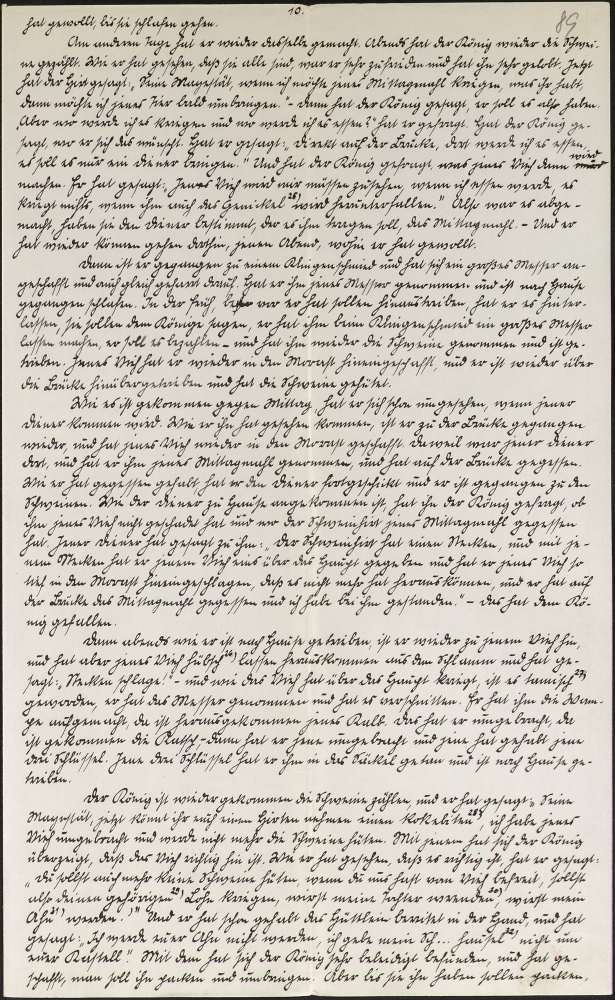 10.
89
hat gewollt, bis sie schlafen gehen.
Am anderen Tage hat er wieder dasselbe gemacht. Abends hat der König wieder die Schwei-
ne gezählt. Wie er hat gesehen, daß sie alle sind, war er sehr zufrieden und hat ihn sehr gelobt. Jetzt
hat der Hirt gesagt: „Seine Magestät, wenn ich möchte jenes Mittagmahl kriegen, was ihr habt,
dann möchte ich jenes Tier bald umbringen." - dann hat der König gesagt, er soll es also haben.
„Aber wo werde ich es kriegen und wo werde ich es essen?" hat er gefragt. Hat der König ge-
sagt, wo er sich das wünscht. Hat er gesagt: „direkt auf der Brücke, dort werde ich es essen,
es soll es nur ein Diener bringen." Und hat der König gefragt, was jenes Vieh dann wird
machen. Er hat gesagt: „Jenes Vieh wird mir müssen zusehen, wenn ich essen werde, es
kriegt nichts, wenn ihm auch das Genickel wird herunterfallen." Also war es abge-
macht, haben sie den Diener bestimmt, der es ihm tragen soll, das Mittagmahl. - Und er
hat wieder können gehen dorthin, jenen Abend, wohin er hat gewollt.
Dann ist er gegangen zu einem Klingenschmied und hat sich ein großes Messer an-
geschafft und auch gleich gehaut drauf. Hat er ihm jenes Messer genommen und ist nach Hause
gegangen schlafen. In der Früh, vor er hat sollen hinaustreiben, hat er es hinter-
lassen, sie sollen dem Könige sagen, er hat ihm beim Klingenschmied ein großes Messer
lassen machen, er soll es bezahlen - und hat ihm wieder die Schweine genommen und ist ge-
trieben. Jenes Vieh hat er wieder in den Morast hineingeschafft, und er ist wieder über
die Brücke hinübergetrieben und hat die Schweine gehütet.
Wie es ist gekommen gegen Mittag, hat er sich schon umgesehen, wenn jener
Diener kommen wird. Wie er ihn hat gesehen kommen, ist er zu der Brücke gegangen
wieder, und hat jenes Vieh wieder in den Morast geschafft. Daweil war jener Diener
dort, und hat er ihm jenes Mittagmahl genommen, und hat auf der Brücke gegessen.
Wie er hat gegessen gehabt, hat er den Diener fortgeschickt und er ist gegangen zu den
Schweinen. Wie der Diener zu Hause angekommen ist, hat ihn der König gefragt, ob
ihm jenes Vieh nicht geschadet hat und wo der Schweinhirt jenes Mittagmahl gegessen
hat. Jener Diener hat gesagt zu ihm: „Der Schweinhirt hat einen Stecken, und mit je-
nem Stecken hat er jenem Vieh eins über das Haupt gegeben und hat er jenes Vieh so
tief in den Morast hineingeschlagen, daß es nicht mehr hat herauskönnen, und er hat auf
der Brücke das Mittagmahl gegessen und ich habe bei ihm gestanden." - das hat dem Kö-
nig gefallen.
Dann abends wie er ist nach Hause getrieben, ist er wieder zu jenem Vieh hin,
und hat aber jenes Vieh hübsch 26) lassen herauskommen aus dem Schlamm und hat ge-
sagt: „Stecken schlage!" - und wie das Vieh hat über das Haupt kriegt, ist es tamisch 27)
geworden, er hat das Messer genommen und hat es verschnitten. Er hat ihm die Wam-
pe aufgemacht, da ist herausgekommen jenes Kalb. das hat er umgebracht, da
ist gekommen die Katsch - dann hat er jene umgebracht und jene hat gehabt jene
drei Schlüssel. Jene drei Schlüssel hat er ihm in das Säckel getan und ist nach Hause ge-
trieben.
Der König ist wieder gekommen die Schweine zählen, und er hat gesagt: „Seine
Magestät, jetzt könnt ihr euch einen Hirten nehmen einen 28), ich habe jenes
Vieh umgebracht und werde nicht mehr die Schweine hüten. Mit jenem hat sich der König
überzeigt, daß das Vieh richtig hin ist. Wie er hat gesehen, daß es richtig ist, hat er gesagt:
„Du sollst auch mehr keine Schweine hüten, wenn du uns hast vom Vieh befreit, sollst
also deinen gehörigen 29) Lohn kriegen, wirst meine Tochter 30), wirst mein
31) werden." Und er hat schon gehabt das Hüttlein bereitet in der Hand, und hat
gesagt: „Ich werde euer nicht werden, ich gebe mein Sch... häusel 32) nicht um
euer Kastell." Mit dem hat sich der König sehr beleidigt befunden, und hat ge-
schafft, man soll ihn packen und umbringen. Aber bis sie ihn haben sollen packen,